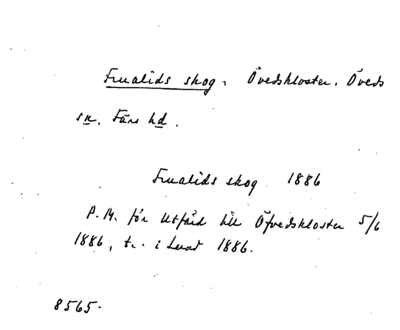 Frualids skog, Övedskloster, Öveds
sn, Färs hd.
Frualids skog 1886
P.M. för Utfärd till Öfvedskloster 5/6
1886, tr. i Lund 1886.
8565.